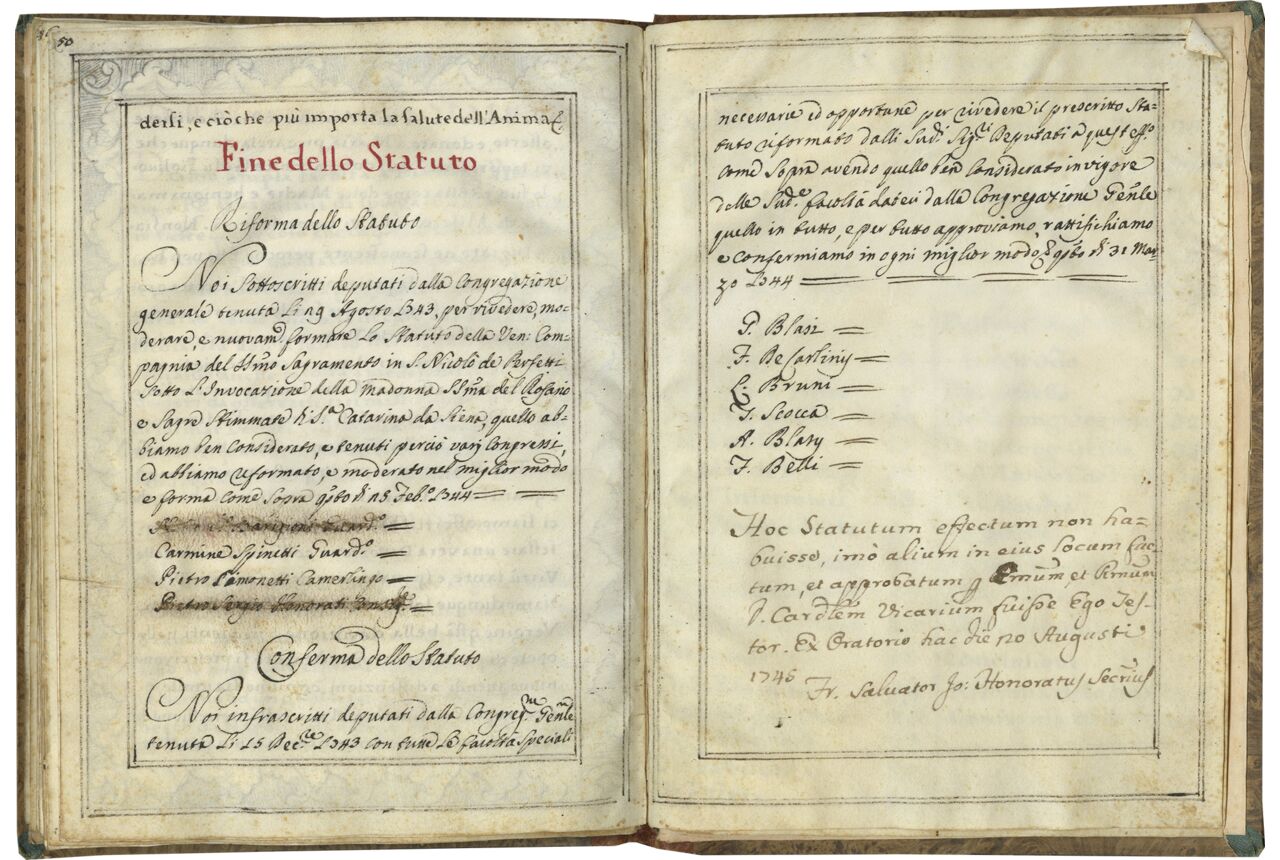 50
dersi, e ciò che più importa la salute dell'Anima
Fine dello Statuto
Riforma dello Statuto
Noi Sottoscritti deputati dalla Congregazione
generale tenuta li 19 Agosto 1743, per rivedere, mo=
derare, e nuovam.e formare lo Statuto della Ven: Com=
pagnia del SSmo Sagramento in S. Nicolò de Perfetti
sotto l'Invocazione della Madonna SSma del Rosario
e Sagre Stimmate di S.a Catarina da Siena, quello ab=
biamo ben Considerato, e tenuti perciò varj Congressi,
ed abbiamo riformato, e moderato nel miglior modo
e forma come sopra q̄sto dì 15 Feb.o 1744
Guard.o
Carmine Spinetti Guard.o
Pietro Simonetti Camerlingo
Pietro Sergio Honorati
Conferma dello Statuto
Noi infrascritti deputati dalla Congreg.ne Genle
tenuta li 15 Dec.re 1743 con tutte le facoltà speciali
necessarie ed opportune per rivedere il prescritto Sta=
tuto riformato dalli Sud.i Sig.ri Deputati a quest'eff.o
come sopra avendo quello ben considerato in vigore
delle Sud.e facoltà dateci dalla Congregazione Genle
quello in tutto, e per tutto approviamo, rattifichiamo
e confermiamo in ogni miglior modo q̄sto dì 31 Mar=
zo 1744
P. Blasi
F. De Sartiny
C. Bruni
F. Scocca
A. Blasy
F. Belli
Hoc Statutum effectum non ha=
buisse, imò alium in eius locum fac=
tum, et approbatum p Emum, et Rmum
D. Cardlem Vicarium fuisse Ego Tes=
tor. Ex Oratorio hac die no Augusti
1745
Fr. Salvator Jo: Honoratus Secrius